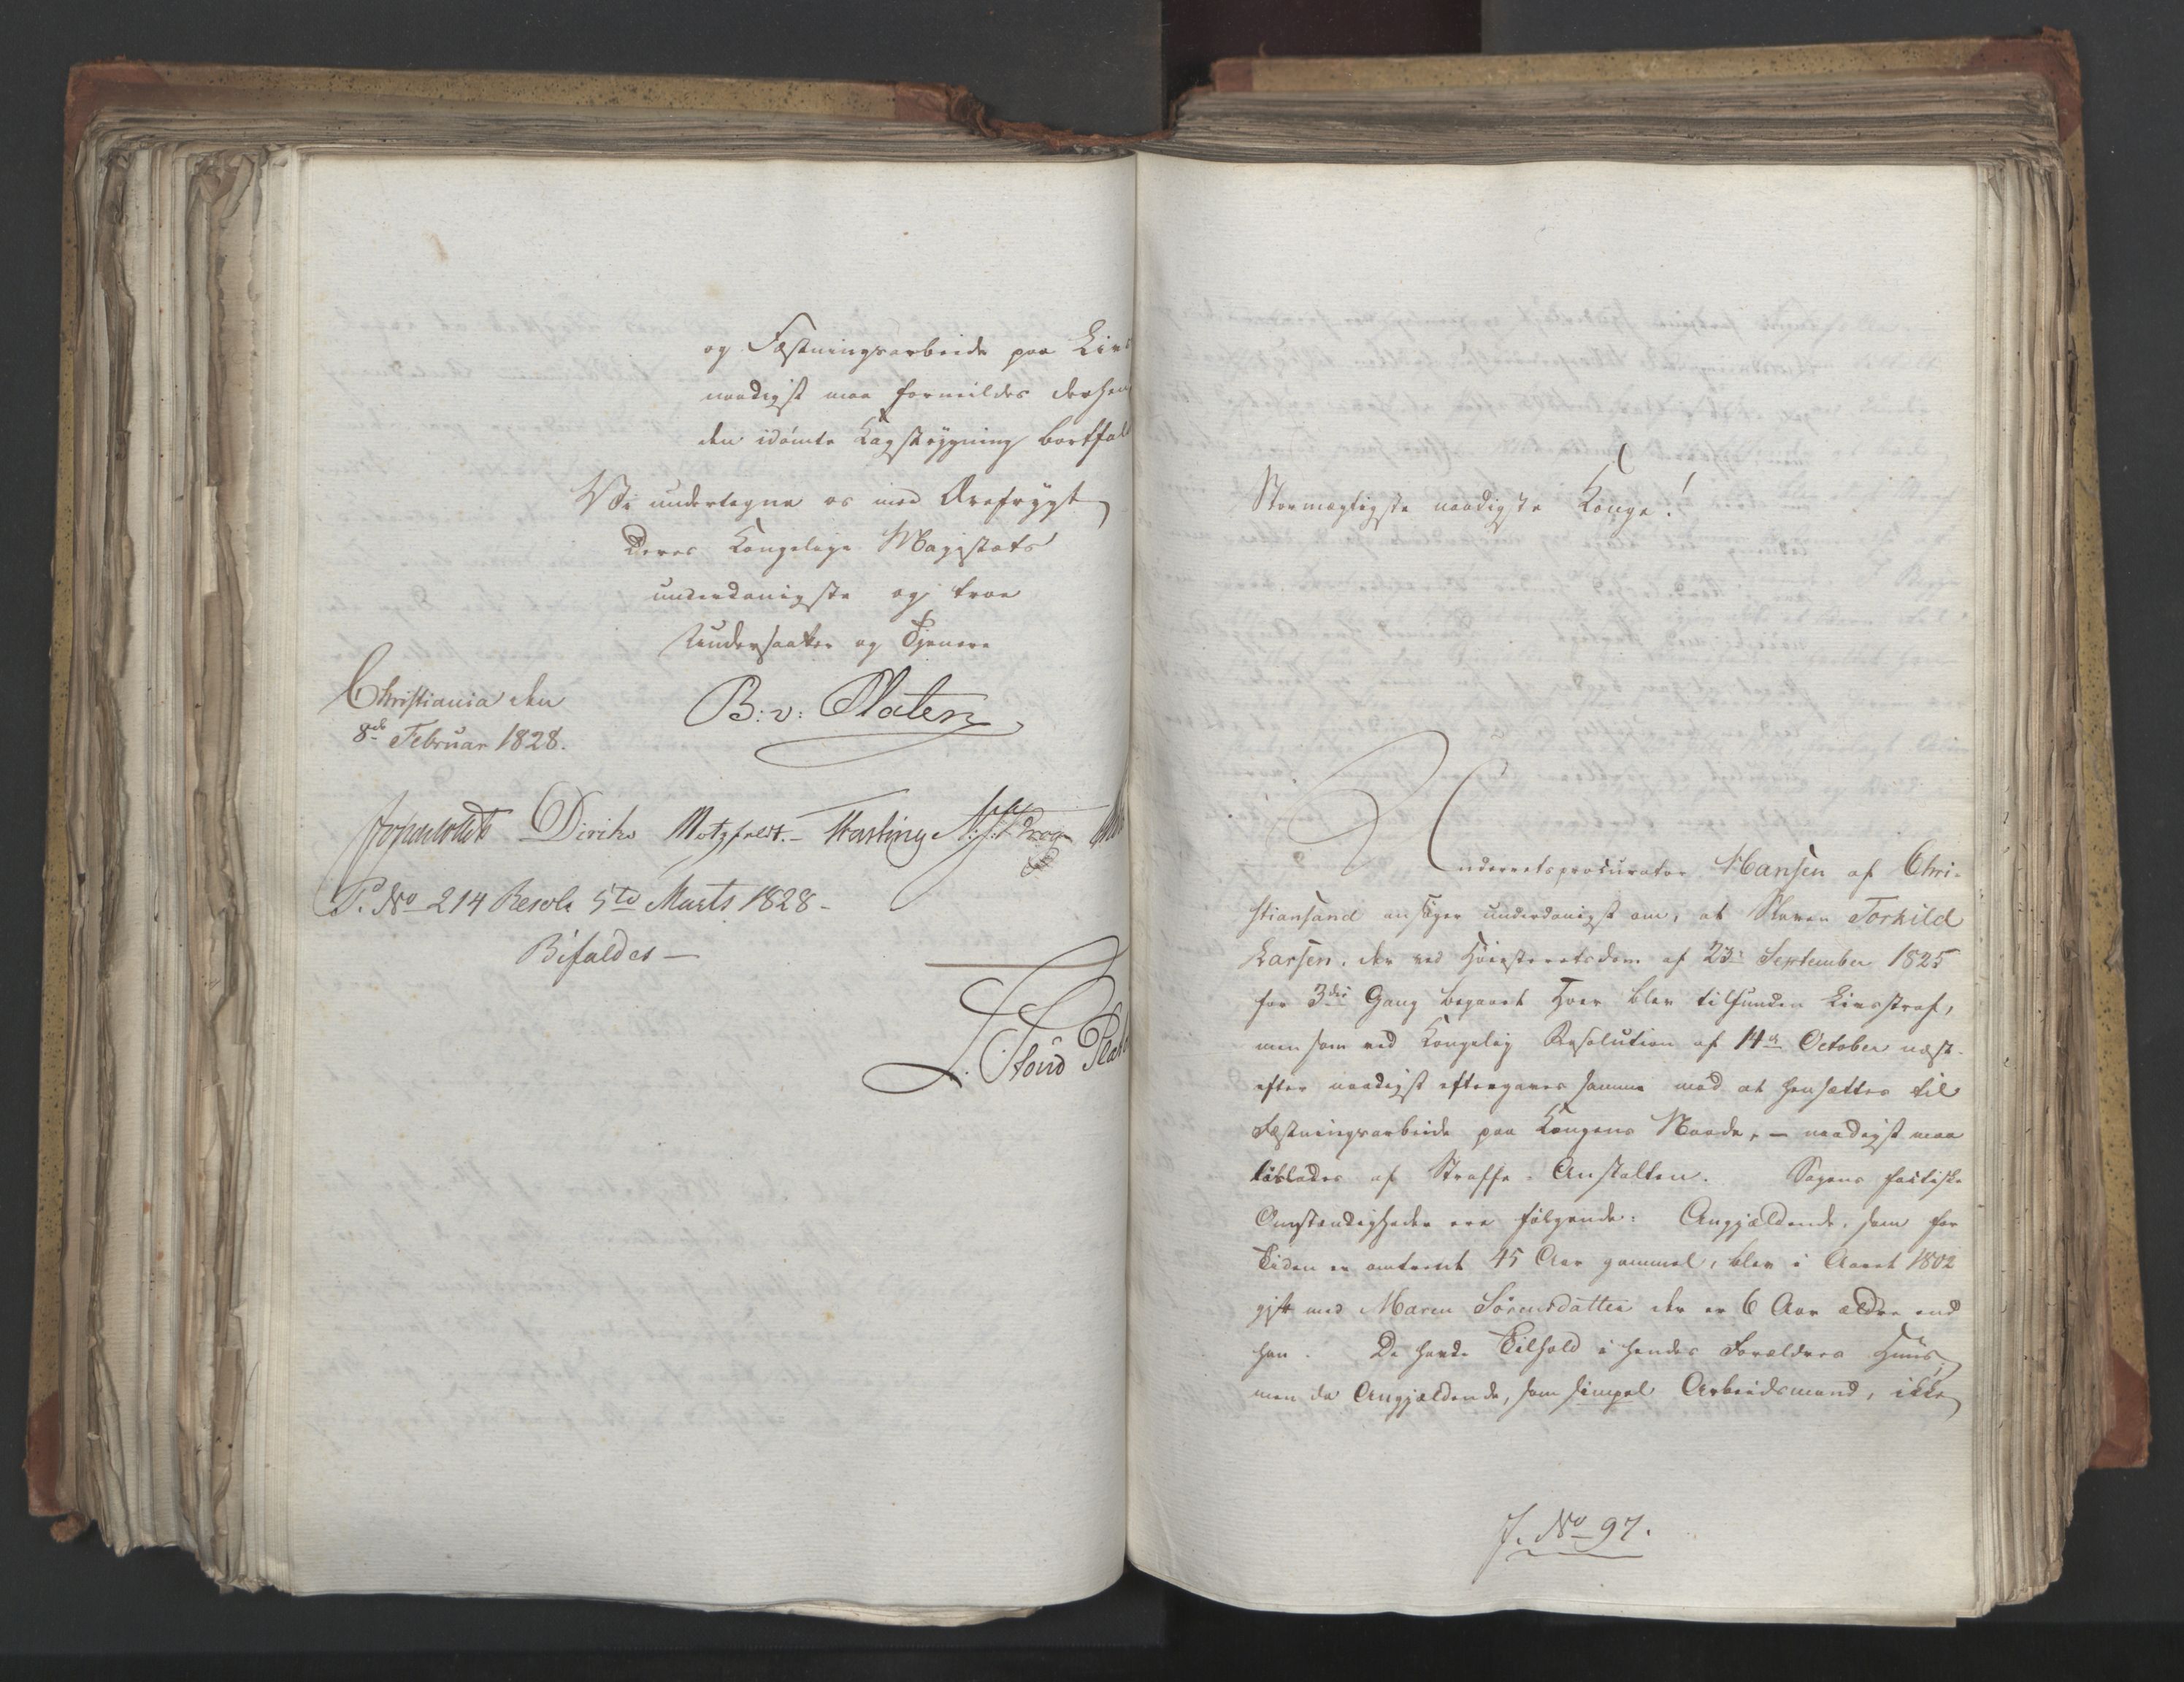 og Fæstningsarbeide paa Livs
naadigst maa formildes derhen
den idømte Kagstrygning bortfald
Vi undertegne os med Ærefrygt
Deres Kongelige Majestæts
underdanigste og troe
Undersaatter og Tjenere
Christiania den
8de Februar 1828.
B: v: Platen
Diriks Motzfeldt. Fasting
P. No 214 Resol. 5te Marts 1828 -
Bifaldes -
Stormægtigste naadigste Konge!
Underretsprocurator Hansen af Chri-
stiansand ansøger underdanigst om, at Slaven Torkild
Larsen, der ved Høiesteretsdom af 23 September 1825
for 3die Gang begaaet Hoer blev tilfunden Livsstraf,
men som ved Kongelig Resolution af 14de October næst-
efter naadigst eftergaves samme mod at hensættes til
Fæstningsarbeide paa Kongens Naade, - naadigst maa
løslades af Straffe-Anstalten. Sagens factiske
Omstændigheder ere følgende: Angjældende, som for
Tiden er omtrent 45 Aar gammel, blev i Aaret 1802
gift med Maren Sørensdatter der er 6 Aar ældre end
han. De havde Tilhold i hendes Forældres Huus;
men da Angjældende, som simpel Arbeidsmand, ikke
J. No 97.